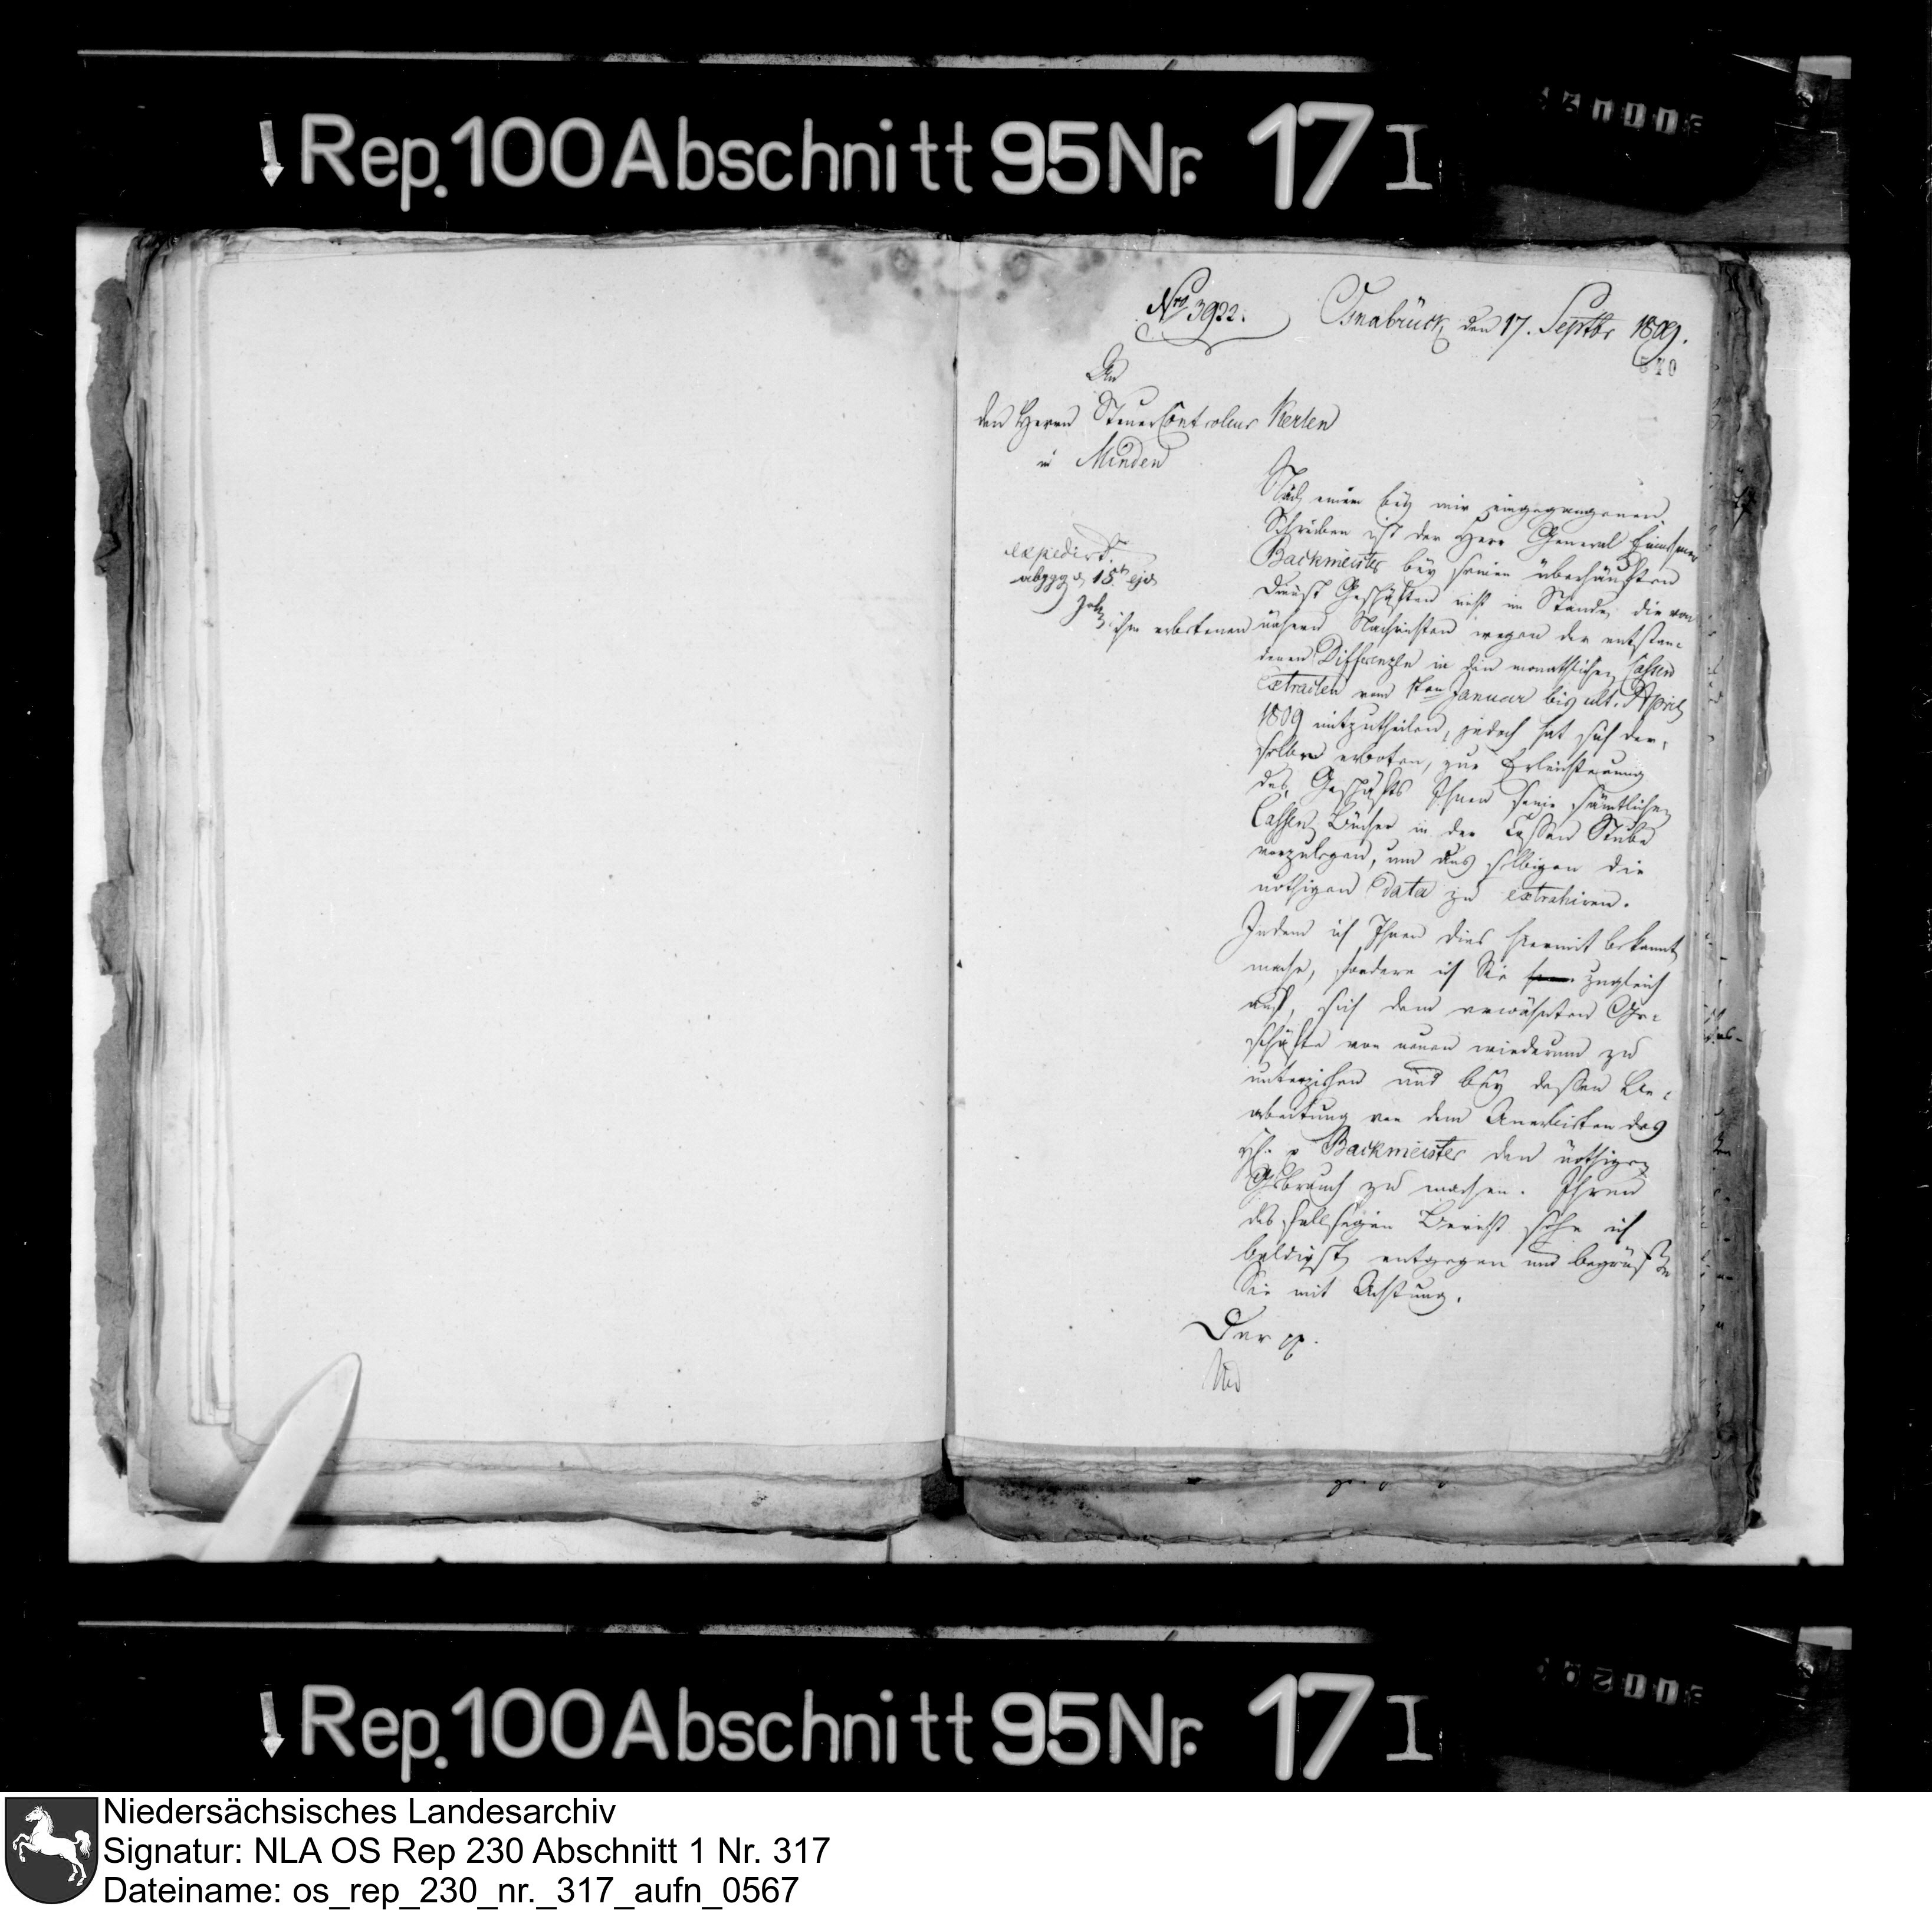 Rep. 100 Abschnitt 95 Nr. 17 I
Nro 3922. Osnabrück den 17. Septbr 1809.
570
An
den Herrn SteuerControleur Kerlen
in Minden
expedirt
abggg d 15t ejd
Nach einem bey mir eingegangenen
Schreiben ist der Herr General Einnehmer
Backmeister bey seinen überhäuften
Dienst Geschäften nicht im Stande, die von
ihm erbetenen nähern Nachrichten wegen der entstan-
denen Differenzen in den monathlichen Cassen
Extracten vom 1ten Januar bis ult. April
1809 mitzutheilen, jedoch hat sich der-
selbe erboten, zur Erleichterung
des Geschäfts Ihnen seine sämtlichen
Cassen Bücher in der Cassen Stube
vorzulegen, um aus selbigen die
nöthigen Data zu extrahiren.
Indem ich Ihnen dies hiermit bekannt
mache, fordere ich Sie zugleich
auf, sich dem erwähnten Ge-
schäfte von neuen wiederum zu
unterziehen und bey dessen Be-
arbeitung von dem Anerbieten des
H. p Backmeister den nöthigen
Gebrauch zu machen. Ihren
desfallsigen Bericht sehe ich
baldigst entgegen und begrüße
Sie mit Achtung.
Der pp.
Rep. 100 Abschnitt 95 Nr. 17 I
Niedersächsisches Landesarchiv
Signatur: NLA OS Rep 230 Abschnitt 1 Nr. 317
Dateiname: os_rep_230_nr._317_aufn_0567